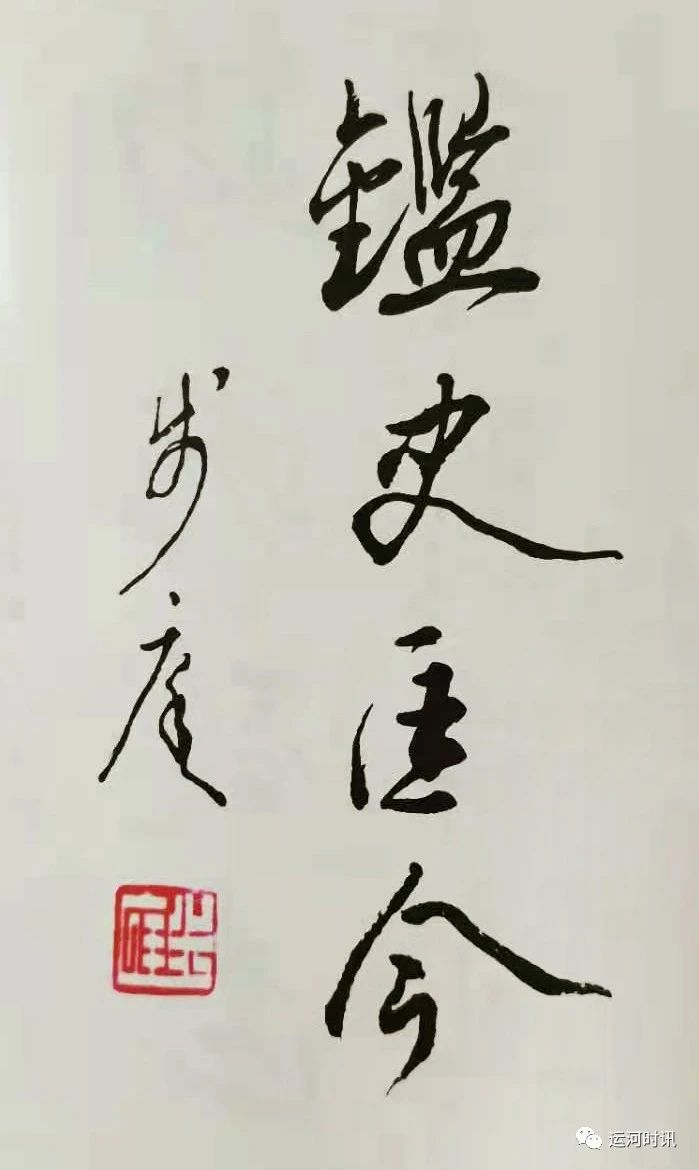 鑑史匡今
步庭
运河时讯